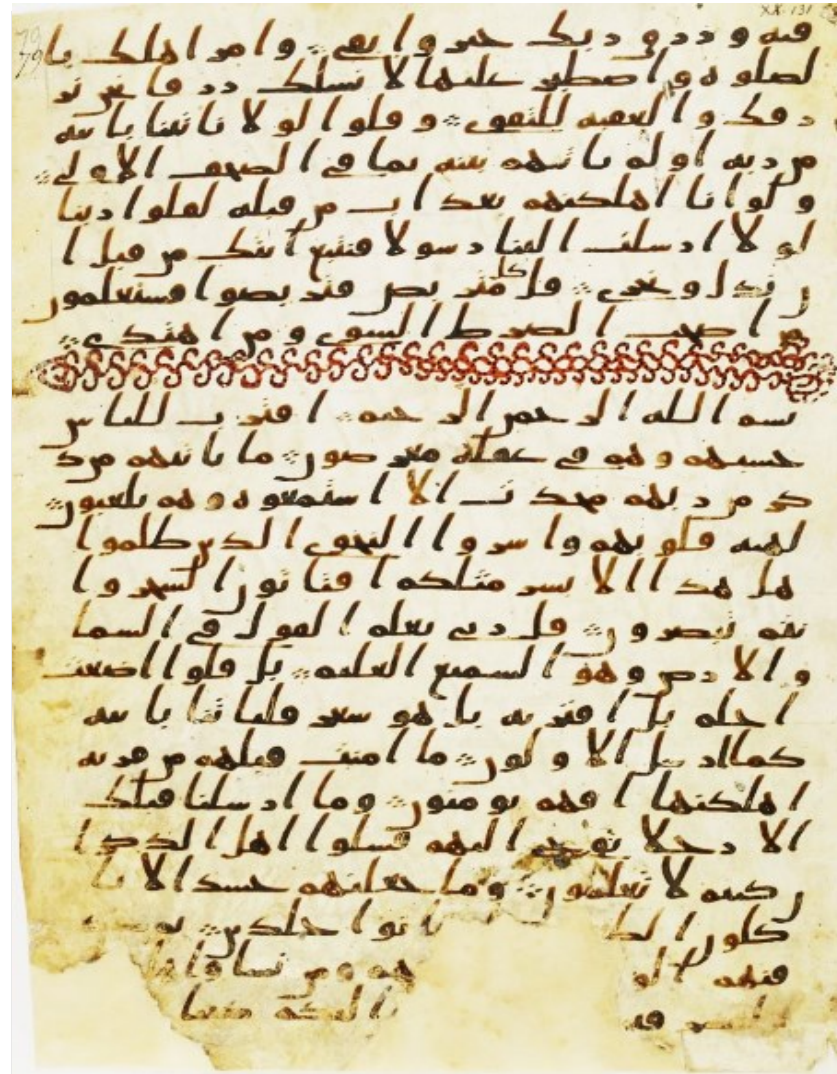 XX.131
79
79
فيه ورزق ربك خير وابقى وامر اهلك با
لصلوه واصطبر عليها لا نسلك رزقا نحن نر
زقك والعقبه للتقوى وقلوا لولا ياتينا بايه
من ربه اولم ياتيهم بينه ما في الصحف الاولى
ولو انا اهلكنهم بعذاب من قبله لقلوا ربنا
لولا ارسلت الينا رسولا فنتبع ايتك من قبل ا
ن نذل ونخزى قل كل متربص فتربصوا فستعلمون
من اصحب الصرط السوى ومن اهتدى
بسم الله الرحمن الرحيم اقترب للناس
حسبهم وهم في غفله معرضون ما ياتيهم من ذ
كر من ربهم محدث الا استمعوه وهم يلعبون
لهيه قلوبهم واسروا النجوى الذين ظلموا
هل هذا الا بشر مثلكم افتاتون السحر وا
نتم تبصرون قل ربي يعلم القول في السما
والارض وهو السميع العليم بل قلوا اضغث
احلم بل افتريه بل هو شعر فلياتنا بايه
كما ارسل الاولون ما امنت قبلهم من قريه
اهلكنها افهم يومنون وما ارسلنا قبلك
الا رجلا يوحى اليهم فسلوا اهل الذكر ا
ن كنتم لا تعلمون وما جعلنهم جسدا لا يا
كلون خلدين
قنهم هم ومن نشا
اليكم كتبا